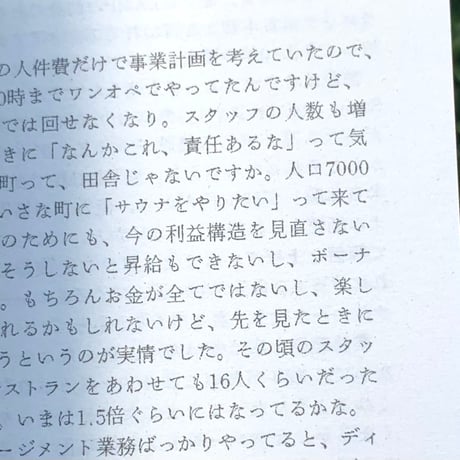 の人件費だけで事業計画を考えていたので、
0時までワンオペでやってたんですけど、
では回せなくなり。スタッフの人数も増
きに「なんかこれ、責任あるな」って気
町って、田舎じゃないですか。人口7000
いさな町に「サウナをやりたい」って来て
のためにも、今の利益構造を見直さない
そうしないと昇給もできないし、ボーナ
。もちろんお金が全てではないし、楽し
れるかもしれないけど、先を見たときに
うというのが実情でした。その頃のスタッ
ストランをあわせても16人くらいだった
。いまは1.5倍ぐらいにはなってるかな。
ージメント業務ばっかりやってると、ディ